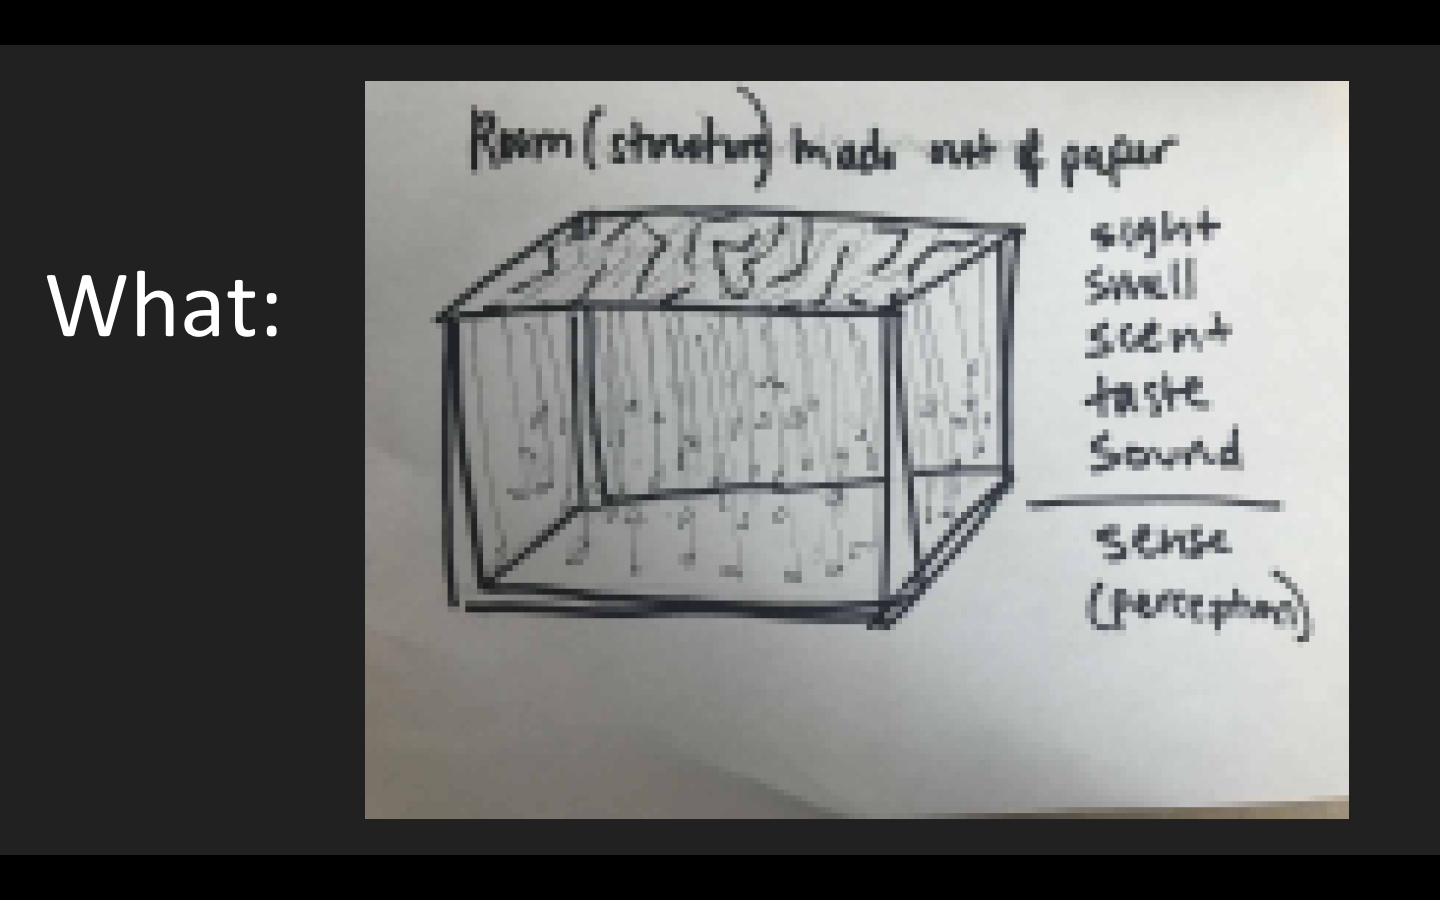 What:
Room (structure) made out of paper
sight
smell
scent
taste
sound
sense
(perception)